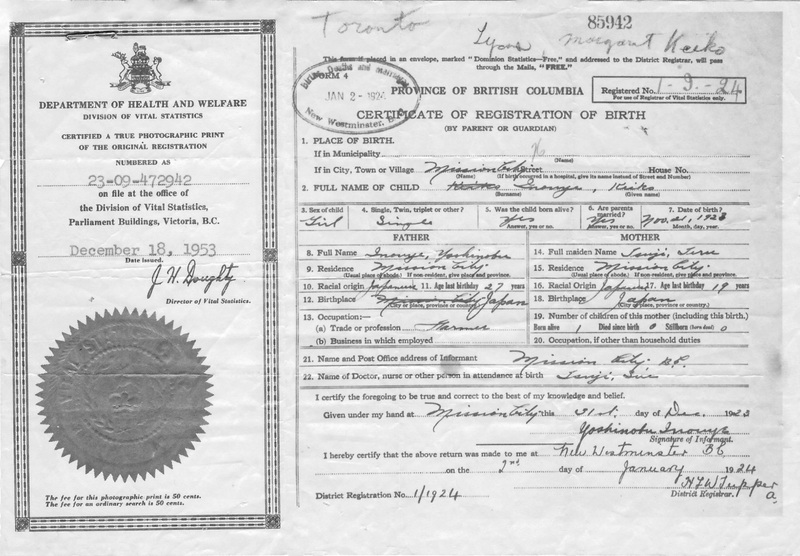 DEPARTMENT OF HEALTH AND WELFARE
DIVISION OF VITAL STATISTICS
CERTIFIED A TRUE PHOTOGRAPHIC PRINT
OF THE ORIGINAL REGISTRATION
NUMBERED AS
23-09-472942
on file at the office of
the Division of Vital Statistics,
Parliament Buildings, Victoria, B.C.
December 18, 1953
Date issued.
J. H. Doughty
Director of Vital Statistics.
The fee for this photographic print is 50 cents.
The fee for an ordinary search is 50 cents.
Toronto
85942
Margaret Keiko
This form if placed in an envelope, marked "Dominion Statistics—Free," and addressed to the District Registrar, will pass
through the Mails, "FREE."
FORM 4
JAN 2 - 1924
New Westminster, B.C.
PROVINCE OF BRITISH COLUMBIA
Registered No. 1-9-24
For use of Registrar of Vital Statistics only.
CERTIFICATE OF REGISTRATION OF BIRTH
(BY PARENT OR GUARDIAN)
1. PLACE OF BIRTH.
If in Municipality
(Name)
If in City, Town or Village Mission City Street House No.
(Name) (If birth occurred in a hospital, give its name instead of Street and Number)
2. FULL NAME OF CHILD Keiko Inouye, Keiko
(Surname) (Given name)
3. Sex of child 4. Single, Twin, triplet or other? 5. Was the child born alive? 6. Are parents married? 7. Date of birth?
Girl Single Yes Yes Nov. 21, 1923
Answer, yes or no. Answer, yes or no. Month, day, year.
FATHER MOTHER
8. Full Name Inouye, Yoshinobu 14. Full maiden Name Tsuji, Teru
9. Residence Mission City 15. Residence Mission City
(Usual place of abode.) If non-resident, give place and province. (Usual place of abode.) If non-resident, give place and province.
10. Racial origin Japanese 11. Age last birthday 27 years 16. Racial Origin Japanese 17. Age last birthday 19 years
12. Birthplace Mission City Japan 18. Birthplace Japan
(City or place, province or country.) (City or place, province or country.)
13. Occupation:— 19. Number of children of this mother (including this birth.)
(a) Trade or profession Farmer Born alive 1 Died since birth 0 Stillborn (born dead) 0
(b) Business in which employed 20. Occupation, if other than household duties
21. Name and Post Office address of Informant Mission City B.C.
22. Name of Doctor, nurse or other person in attendance at birth Tsuji,
I certify the foregoing to be true and correct to the best of my knowledge and belief.
Given under my hand at Mission City this 31st. day of Dec. 1923
Yoshinobu Inouye
Signature of Informant.
I hereby certify that the above return was made to me at New Westminster BC
on the 2nd day of January 1924
District Registration No. 1/1924 H.L.W. Tupper
District Registrar.